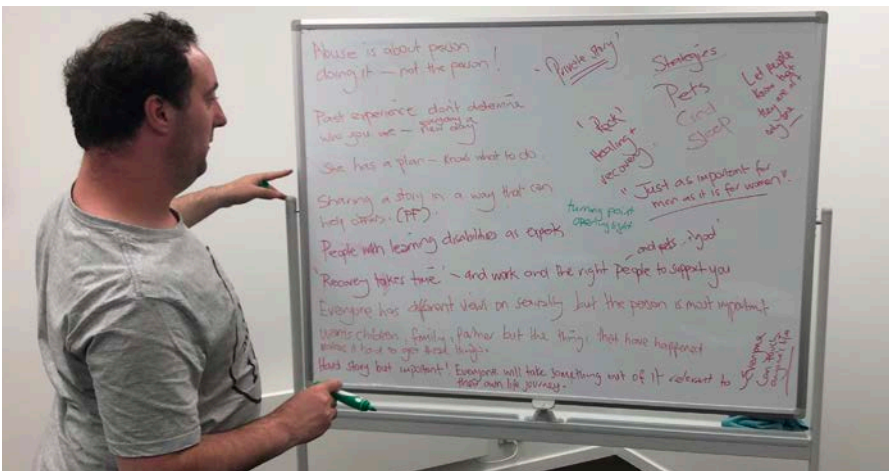 Abuse is about person
doing it – not the person!
Past experience don't determine
who you are – new day
She has a plan – knows what to do.
Sharing a story in a way that can
help others. (PF).
People with learning disabilities as experts
'Recovery takes time' – and work and the right people to support you
Everyone has different views on sexuality but the person is most important
Wants children, family, partner but the things that have happened
makes it hard to get these things.
Hard story but important! Everyone will take something out of it relevant to
their own life journey.
- 'Private story'
'Pack'
Healing +
recovery
turning point
opening light
and pets.. 'yood'
Strategies
Pets
Cind
Sleep
Let people
know that
they are not
only one
"Just as important for
men as it is for women".
Everyone
can